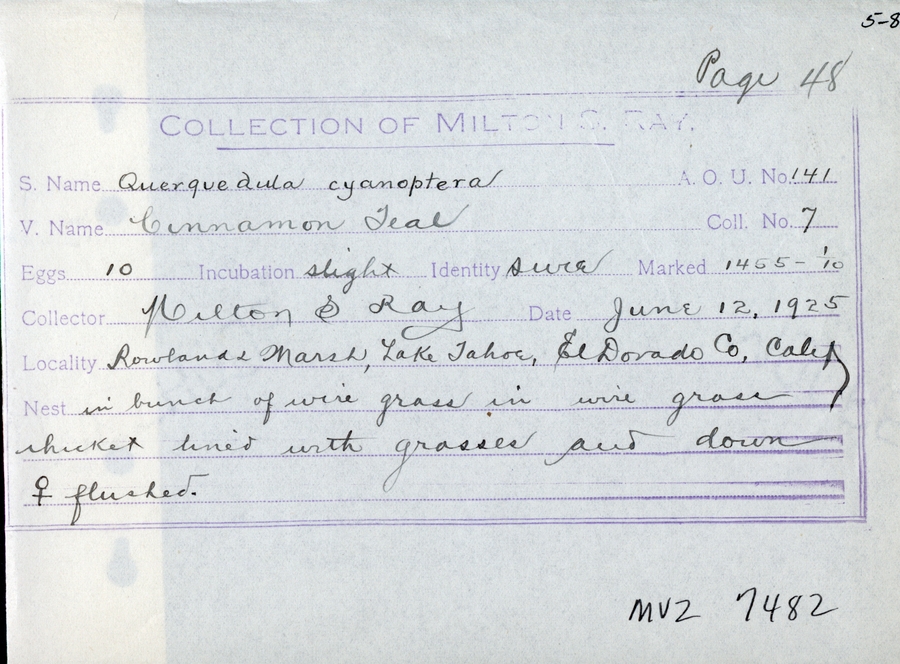 5-8
Page 48
COLLECTION OF MILTON S. RAY.
S. Name Querquedula cyanoptera A. O. U. No. 141
V. Name Cinnamon Teal Coll. No. 7
Eggs 10 Incubation slight Identity sure Marked 1455-'10
Collector Milton S Ray Date June 12, 1925
Locality Rowlands Marsh, Lake Tahoe, El Dorado Co, Calif
Nest in bunch of wire grass in wire grass
thicket lined with grasses and down
♀ flushed.
MVZ 7482